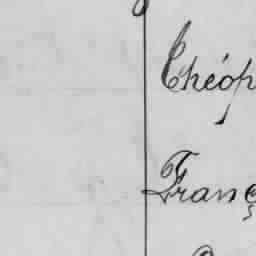 Théop
Franç